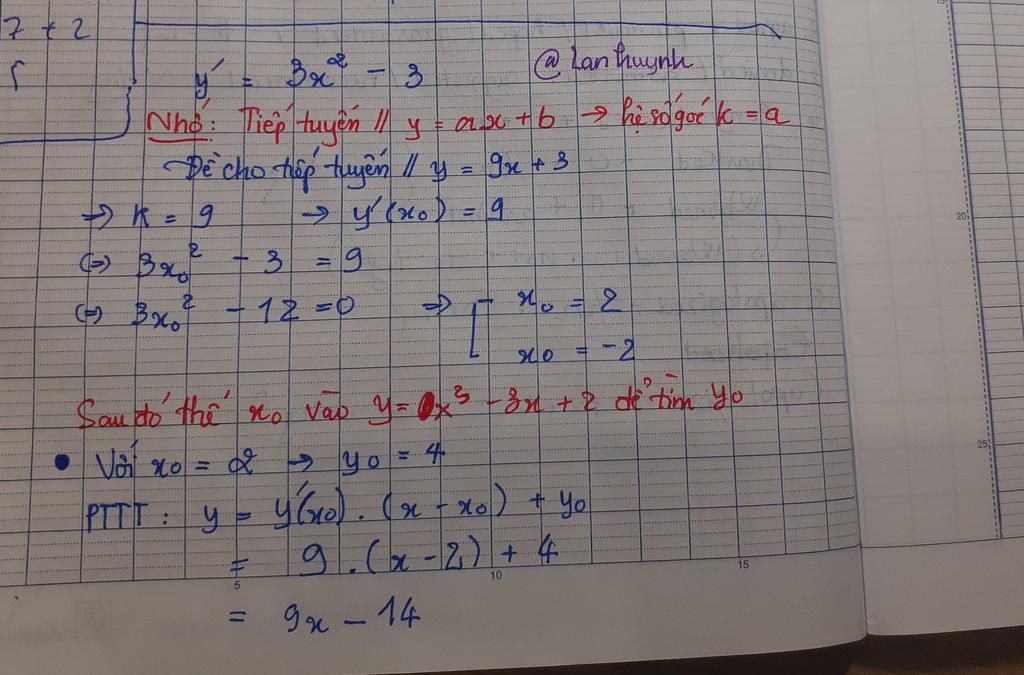 7 + 2
y' = 3x² - 3
@ Lanhuynh
Nhớ: Tiếp tuyến // y = ax + b → hệ số góc k = a
Đề cho tiếp tuyến // y = 9x + 3
→ K = 9 → y'(x₀) = 9
(=) 3x₀² - 3 = 9
(=) 3x₀² - 12 = 0 => [ x₀ = 2
x₀ = -2
20
Sau đó thế x₀ vào y = x³ - 3x + 2 để tìm y₀
• Với x₀ = 2 → y₀ = 4
25
PTTT : y = y'(x₀) . (x - x₀) + y₀
= 9 . (x - 2) + 4
5 10 15
= 9x - 14